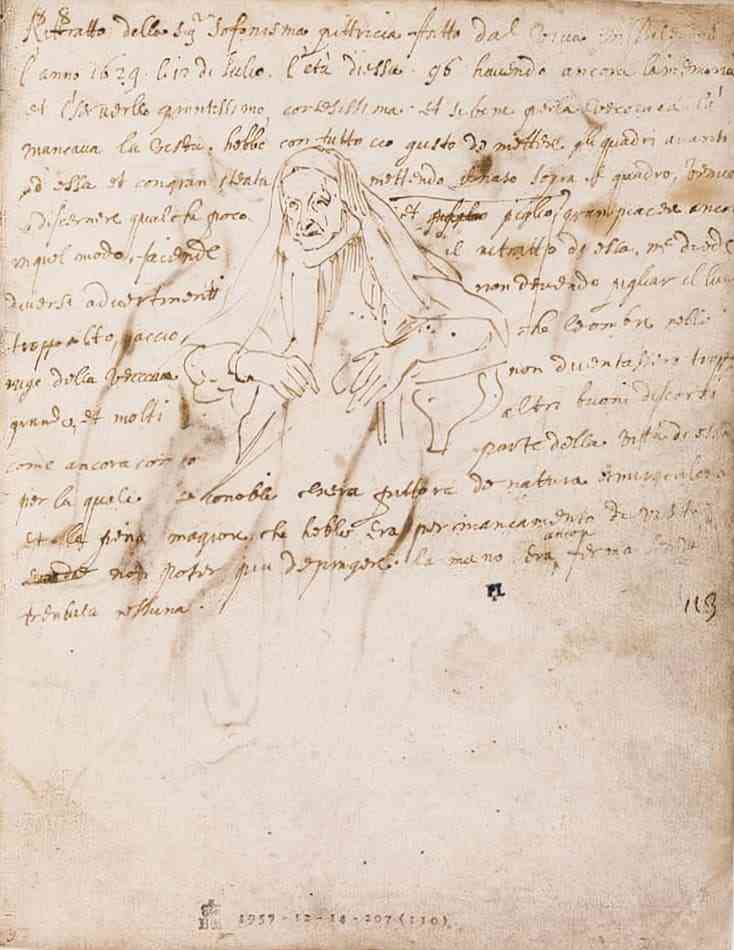 Rittratto della Sigra Sofonisma pittricia fatto dal vivo in Palermo
l'anno 1629 li 12 di Julio. l'età di essa 96 havendo ancora la memoria
et il serverllo prontissimo, cortesissima et sebene per la vecciaia la
mancava la vista. hebbe con tutto cio gusto de mettere gli quadri avanti
ad essa et con gran steata mettendo il naso sopra il quadro, venne
a discernere qualche poco et piglio gran piacere ancora
in quel modo, facendo il ritratto di essa, me diede
diversi advertimenti non devendo pigliar il lume
troppo alto, accio che le ombre nelle
ruge della vecciaia non diventassero troppo
grande, et molti altri buoni discorsi
come ancora conto parte della vitta di essa
per la quale se conobbe ch'era pittora de natura et miraculosa
et la pena magiore che hebbe era per mancamento di vista
non poter piu dipingere. la mano era ancora ferma senza
tremula nessuna.
PL
118
1957-12-14-207(110)